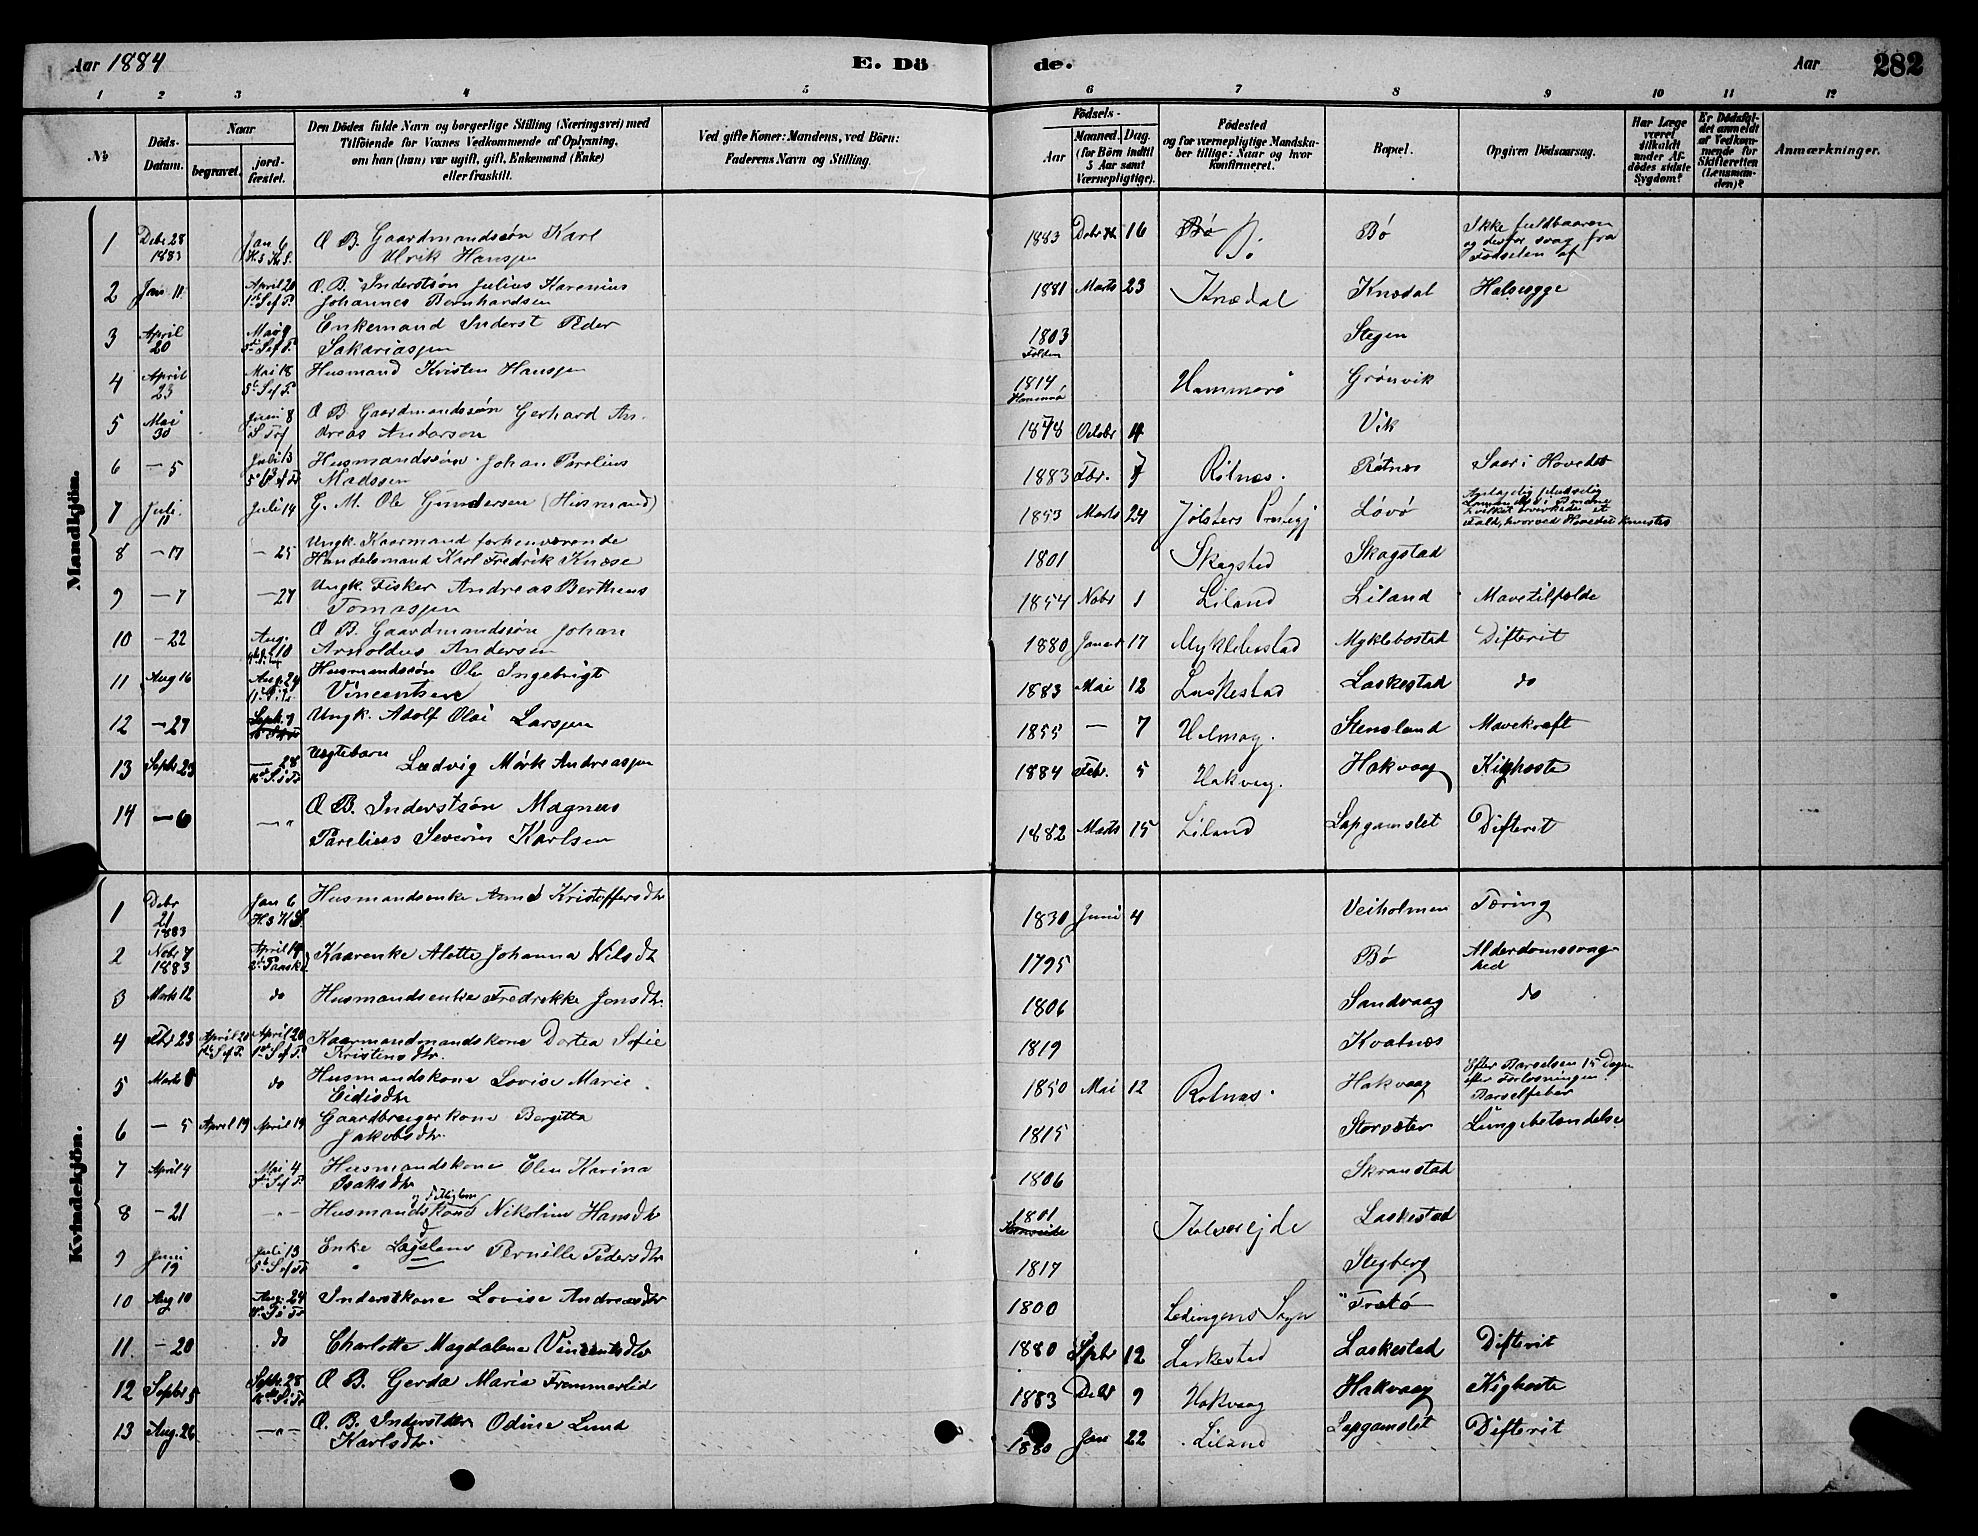 Aar 1884
E. Dö
de.
Aar
282
1 2 3 4 5 6 7 8 9 10 11 12
No
Döds-Datum.
Naar
begravet.
jord-fæstet.
Den Dödes fulde Navn og borgerlige Stilling (Næringsvei) med
Tilföiende for Voxnes Vedkommende af Oplysning,
om han (hun) var ugift, gift, Enkemand (Enke)
eller fraskilt.
Ved gifte Koner: Mandens, ved Börn:
Faderens Navn og Stilling.
Födsels-
Aar
Maaned. Dag.
(for Börn indtil
5 Aar samt
Værnepligtige).
Födested
og for værnepligtige Mandska-
ber tillige: Naar og hvor
konfirmeret.
Bopæl.
Opgiven Dödsaarsag.
Har Læge
været
tilkaldt
under Af-
dödes sidste
Sygdom?
Er Dödsfal-
det anmeldt
af Vedkom-
mende for
Skifteretten
(Lensman-
den)?
Anmærkninger.
Mandkjön.
1 Debr 28 1883 Jan 6 Æ B. Gaardmandssøn Karl
Ulrik Hansen 1883 16 Bø Bø Ikke fuldbaaren
og derfor svag fra
Fødselen af
2 Jan 11 April 20 Æ. B. Inderstsøn Julius Karenius
Johannes Bernhardsen 1881 Marts 23 Knædal Knædal
3 April 20 Mai Enkemand Inderst Peder
Sakariassen 1803 Folden Stegen
4 April 23 Mai 18 Husmand Kristen Hansen 1814 Hammerø Grønvik
5 Mai 30 Juni 8 Æ B Gaardmandssøn Gerhard An-
dreas Andersen 1878 Octobr 4 Vik
6 — 5 Juli 13 Husmandssøn Johan Parelius
Madssen 1883 Fbr. 7 Rotnes. Røtnes Saar i Hovedet
7 Juli 11 Juli 14 G. M. Ole Gundersen (Husmand) 1853 Marts 24 Jølsters Løvø
8 — 17 — 25 Ungk. Kaarmand forhenværende
Handelsmand Karl Fredrik Knæse 1801 Skagstad Skagstad
9 — 7 — 27 Ungk. Fisker Andreas Bertheus
Tomassen 1854 Nobr 1 Liland Liland Mavetilfælde
10 — 22 Aug. 10 Æ B. Gaardmandssøn Johan
Arnoldus Andersen 1880 Januar 17 Myklebostad Myklebostad Difterit
11 Aug 16 Aug. 24 Husmandssøn Ole Ingebrigt
Vincentsen 1883 Mai 12 Laskestad Laskestad do
12 — 27 Septr. 7 Ungk. Adolf Olai Larssen 1855 — 7 Helmog. Stensland Mavekræft
13 Septr 23 — 28 Uegtebarn Ludvig Mørk Andreassen 1884 Febr. 5 Hakvaag. Hakvaag Kighoste
14 — 6 — " Æ B. Inderstsøn Magnus
Parelius Severin Karlsen 1882 Marts 15 Liland Lapgamslet Difterit
Kvindekjön.
1 Debr 21 1883 Jan 6 Husmandsenke Anne Kristoffersdtr 1830 Juni 4 Veiholmen Tæring
2 Nobr 7 1883 April 14 Kaarenke Alette Johanna Nilsdtr 1795 Bø Alderdomssvag-
hed
3 Marts 12 do Husmandsenke Fredrikke Jonsdtr. 1806 Sandvaag do
4 Febr 23 April 20 April 20 Kaarmandmandskone Dortea Sofie
Kristensdtr. 1819 Kvatnæs
5 Marts 8 do Husmandskone Lovise Marie
Eidisdtr 1850 Mai 12 Rotnes. Hakvaag Efter Barselsen 15 Dagen
efter Forløsningen.
Barselfeber
6 — 5 April 19 April 19 Gaardbrugerkone Bergitta
Jakobsdtr. 1815 Storsæter Lungebetændelse
7 April 4 Mai 4 Husmandskone Elen Karina
Isaksdtr 1806 Skranstad
8 — 21 — " — Husmandskone Nikoline Hansdtr 1801 Kalvareide Laskestad
9 Juni 19 Juli 13 Enke Pernille Pedersdtr 1817 Stegberg
10 Aug 10 Aug. 24 Inderstkone Lovise Andreasdtr 1800 Lødingens Sogn
11. — 20 do Charlotte Magdalena Vincentsdtr 1880 Spbr 12 Laskestad Laskestad Difterit
12 Septbr 5 Septr. 28 Æ B. Gerda Maria Frammerlid 1883 Debr 9 Hakvaag Hakvaag Kighoste
13 Aug. 26 — " — Æ. B. Inderstdtr Odine Lund
Karlsdtr. 1880 Jan 22 Liland Lapgamslet Difterit